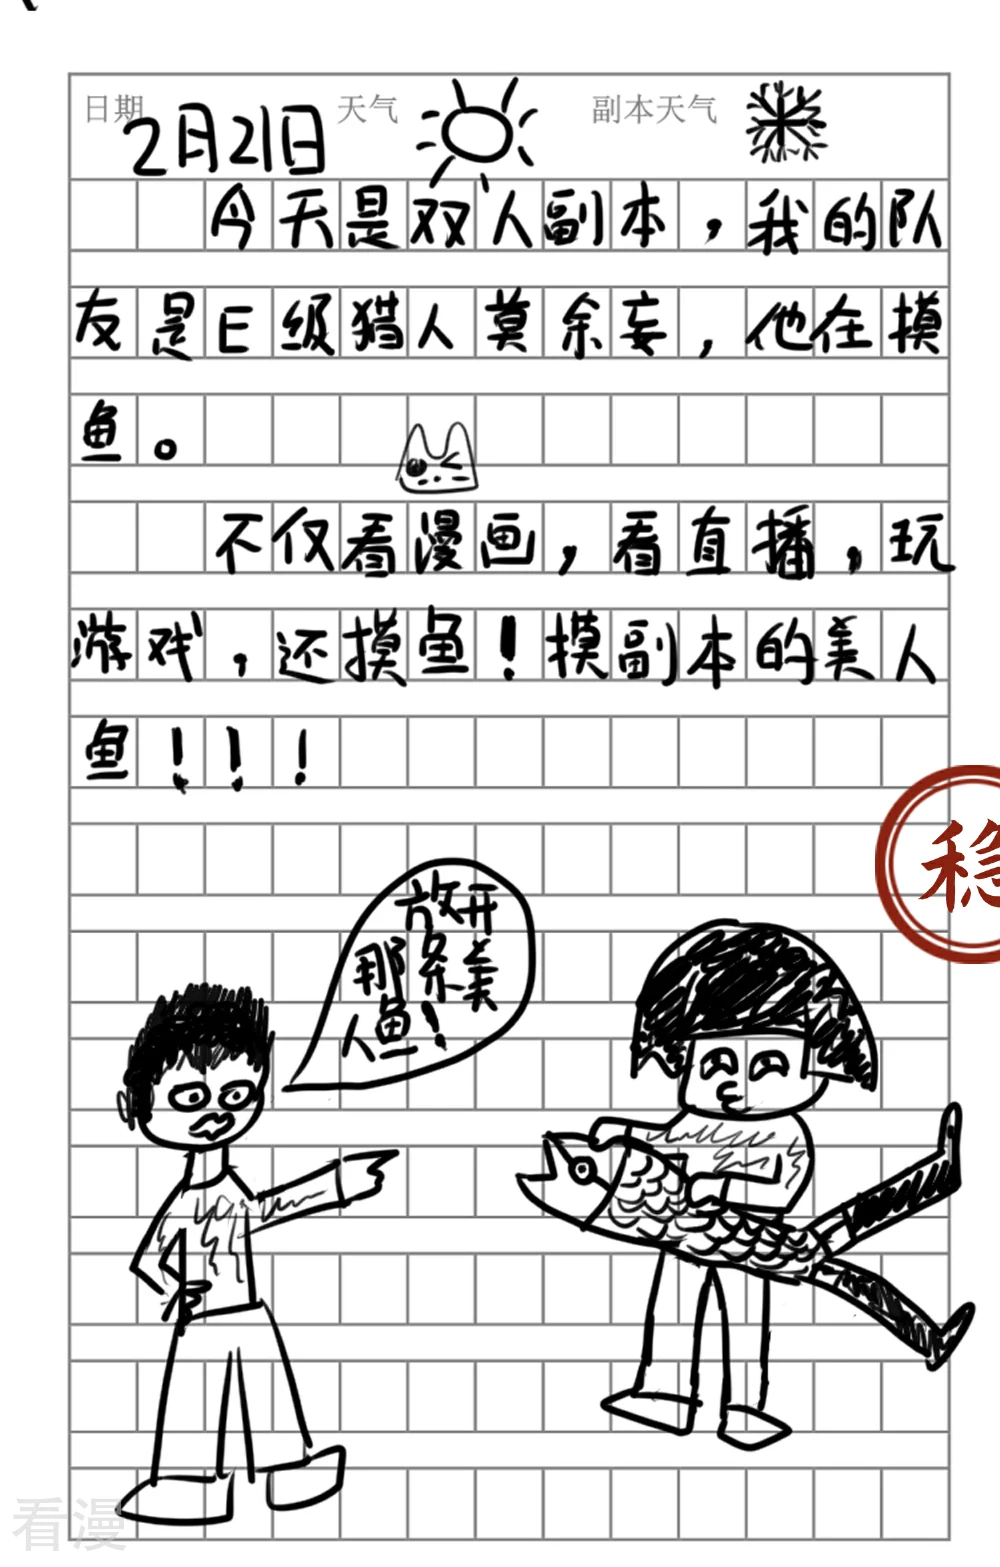 日期 2月21日 天气 副本天气
今天是双人副本，我的队
友是E级猎人莫余妄，他在摸
鱼。
不仅看漫画，看直播，玩
游戏，还摸鱼！摸副本的美人
鱼！！！
稳
放开
那条美
人鱼！
看漫